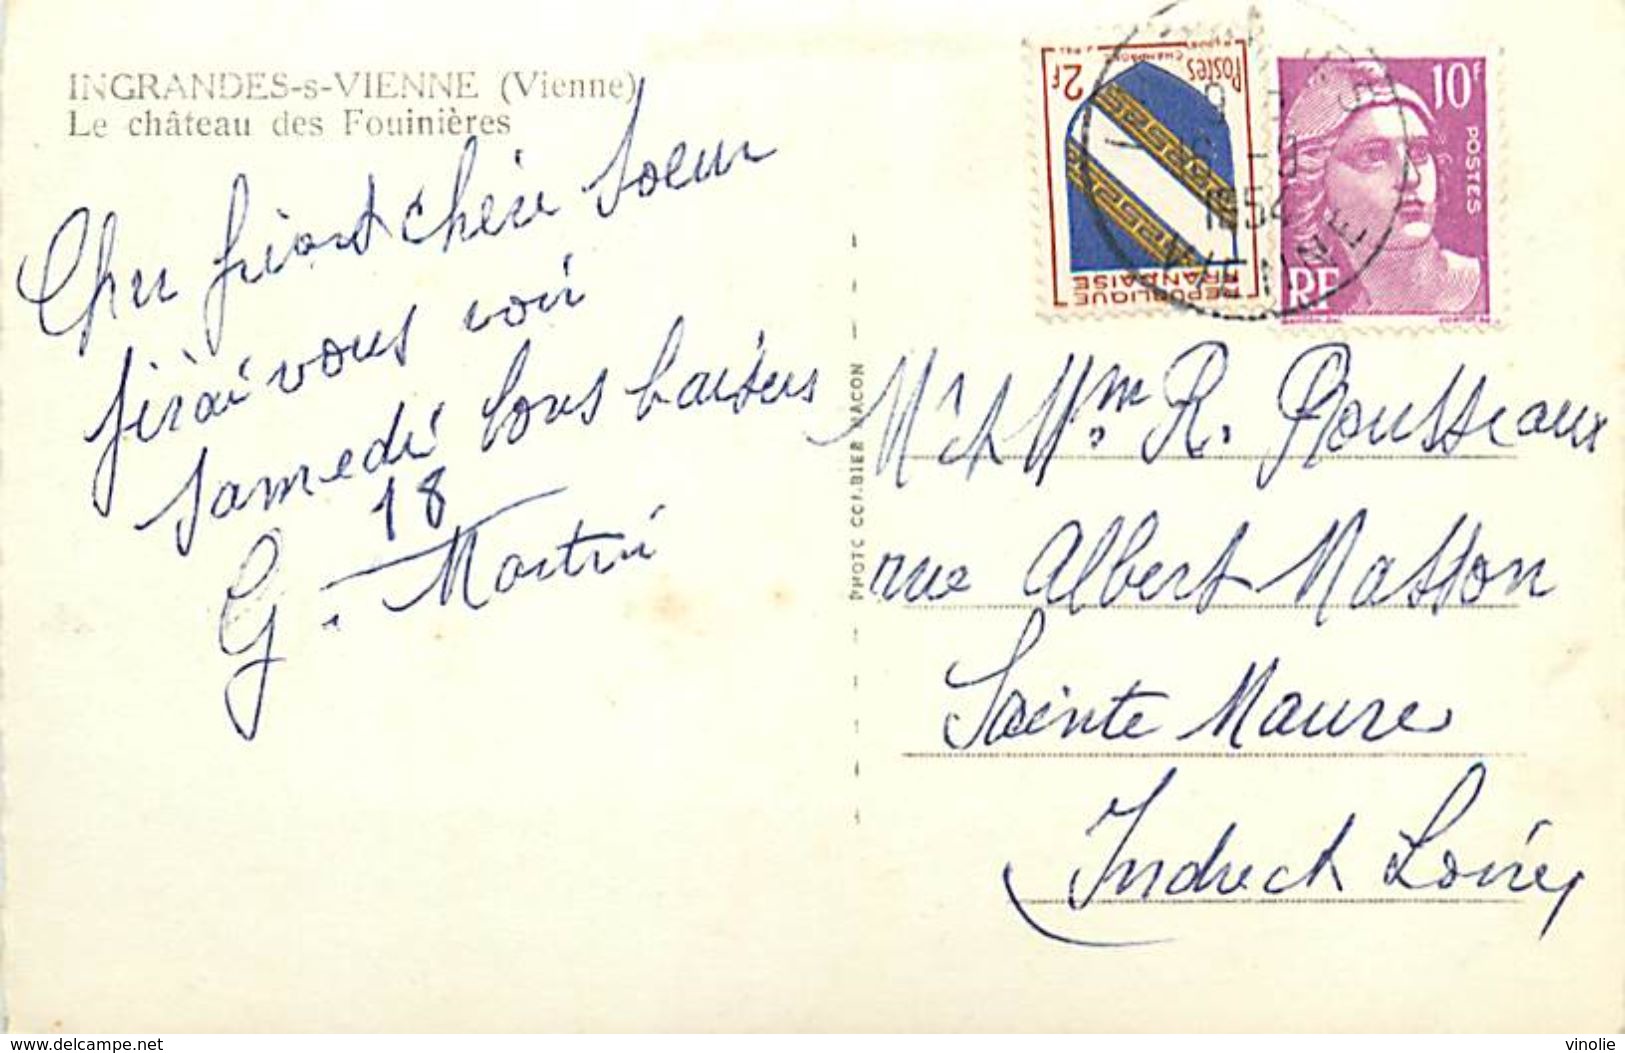 INGRANDES-s-VIENNE (Vienne)
Le château des Fouinières
Cher frère et chère Soeur
j'irai vous voir
samedi bons baisers
18
G. Martin
PHOTO COMBIER MACON
Postes
2F
CHAMPAGNE
REPUBLIQUE
FRANÇAISE
1954
VIENNE
10F
POSTES
RF
Mr et Mme R. Rousseaux
rue Albert Masson
Sainte Maure
Indre et Loire
www.delcampe.net
vinolie